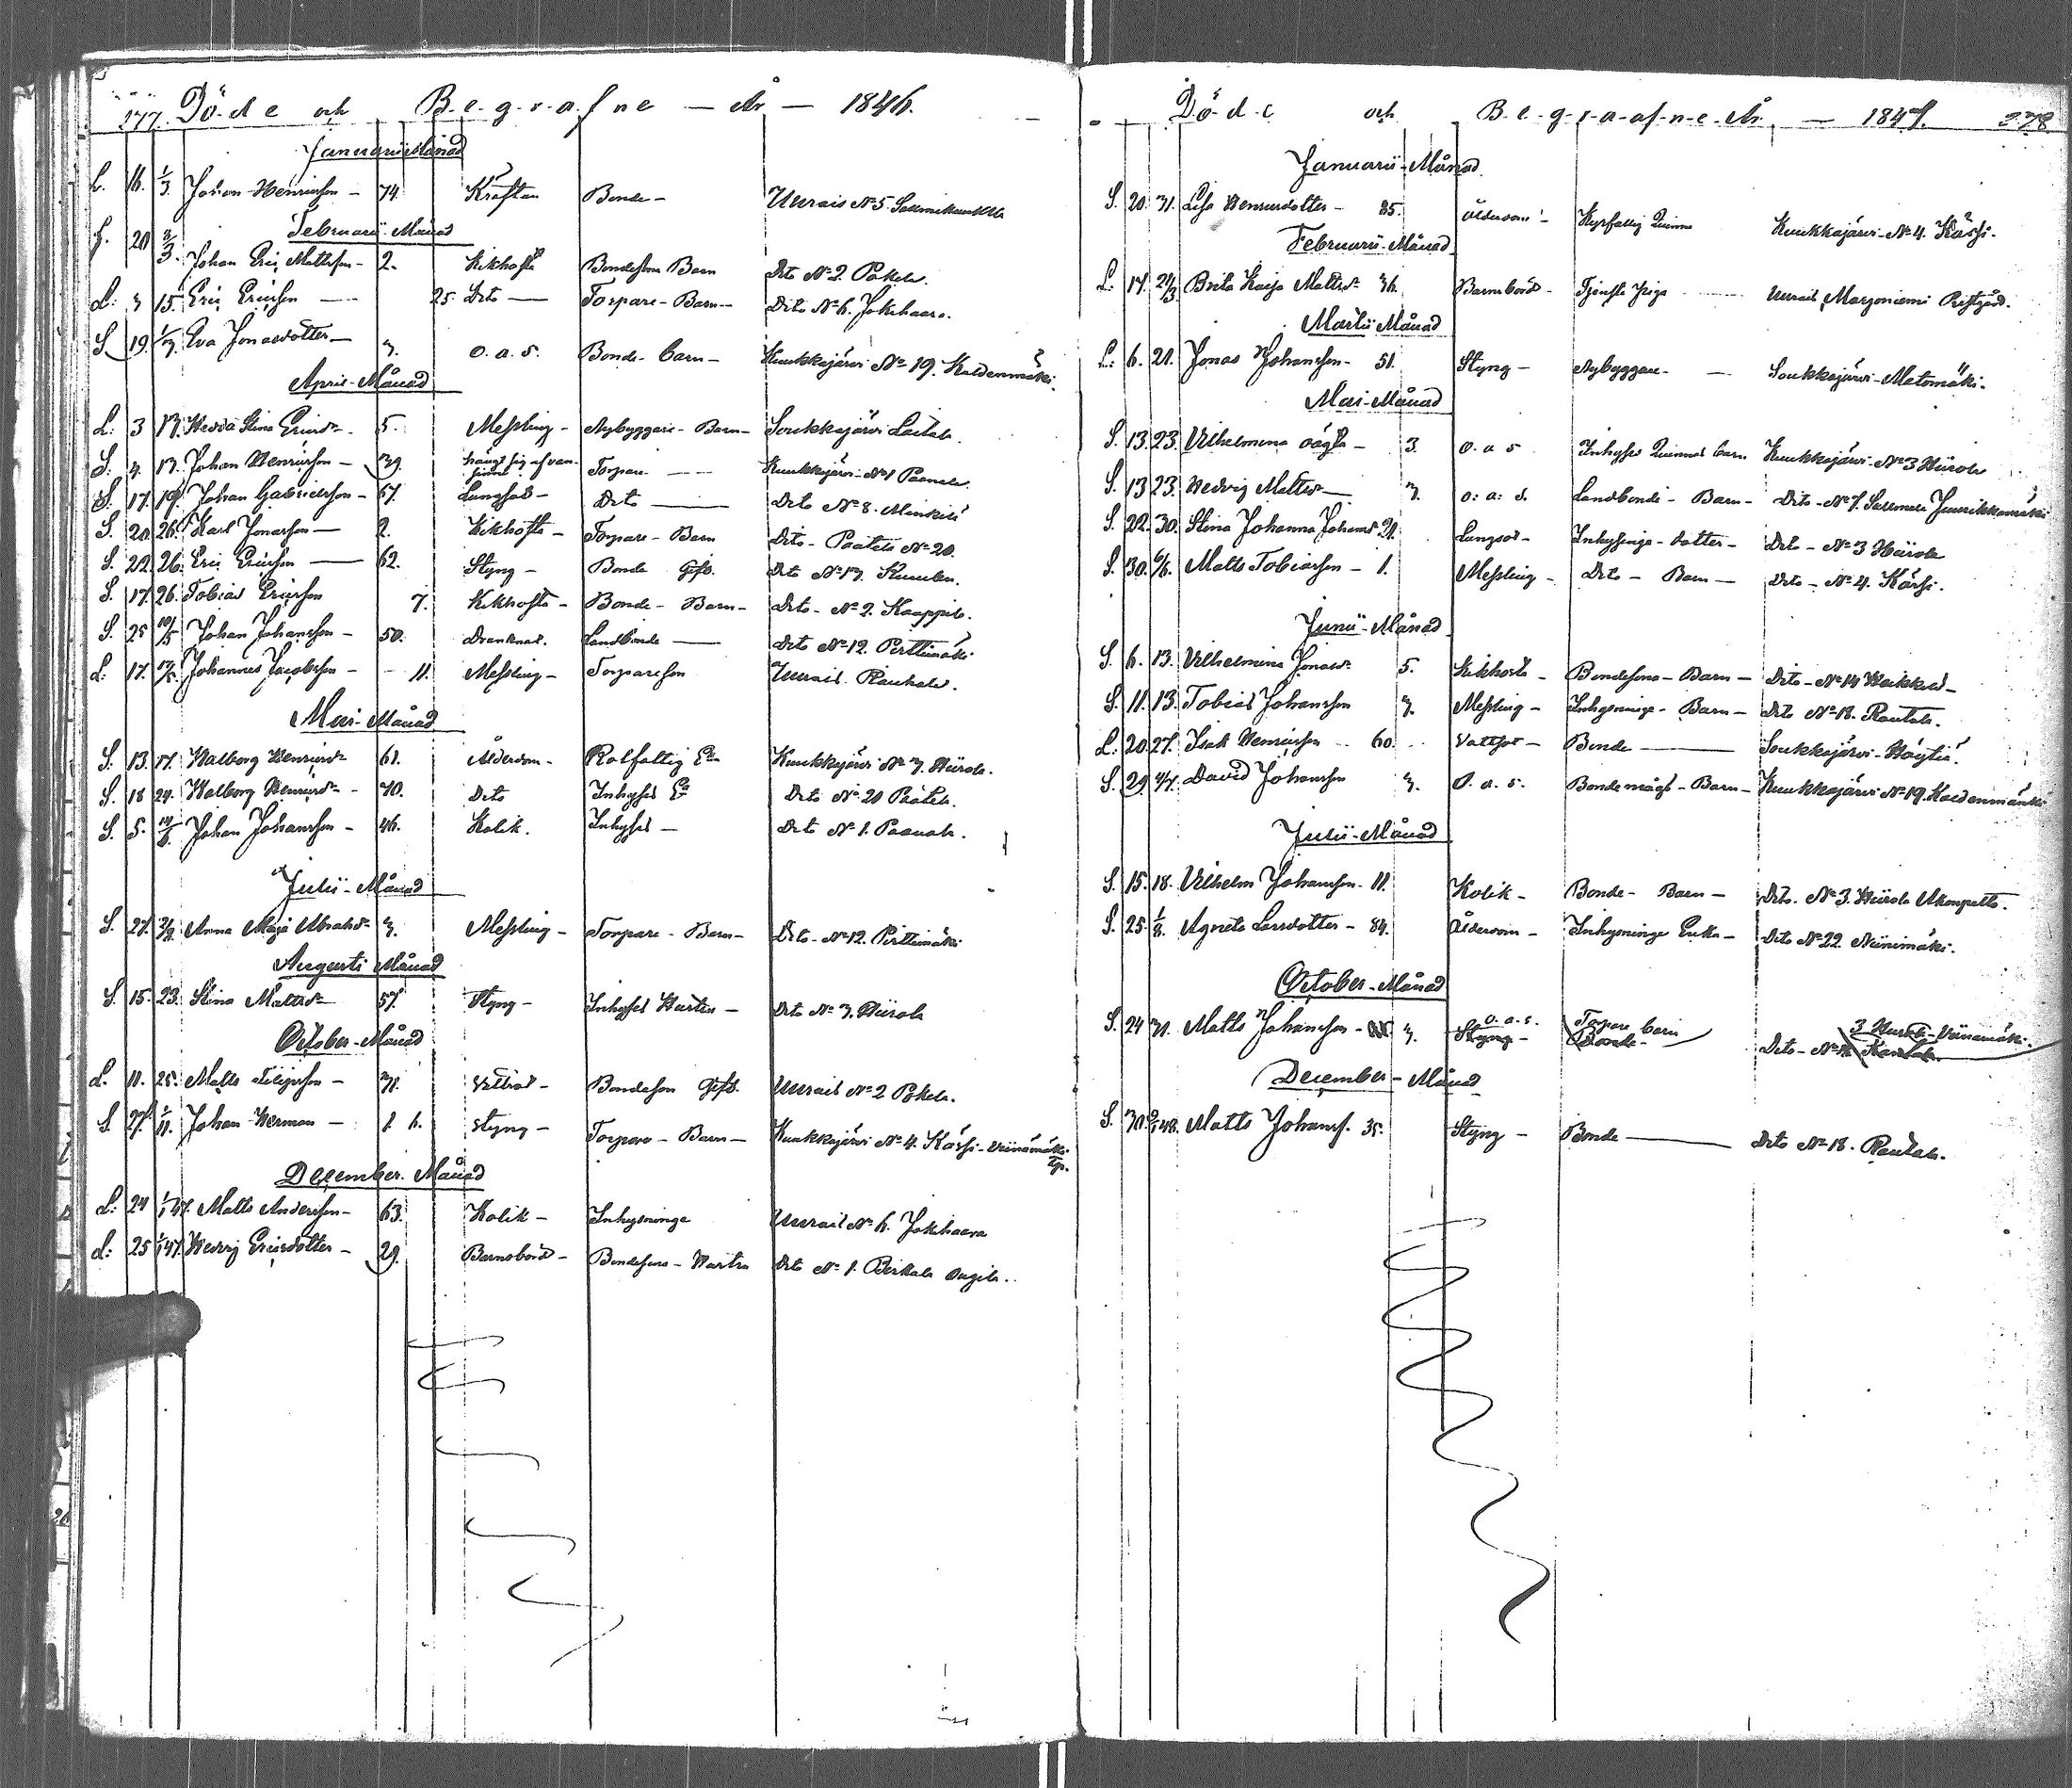 277. Döde och Begrafne År 1846.
Januarii Månad
L. 16. 1/3 Johan Henricsson - 74. Kräftan Bonde - Uurais No 5
Februarii Månad
20 8/3. Johan Eric Mattsson - 2. Kikhosta Bondesons Barn Dito No 2. Pokela.
L: 3 15. Eric Ericsson - 25. Dito - Torpare - Barn - Dito No 6. Jokihaara.
S 19. Eva Jonasdotter - 3. o. a. s. Bonde - Barn - Kuukkajärvi No 19. Kaldenmäki.
April - Månad
L: 3 13. Hedda Stina Ericsdr 5. Messling - Nybyggare - Barn - Soukkajärvi Laitala.
S: 4. 13. Johan Henricsson - 39. hängt sig af vansinne Torpare - Kuukkajärvi No 1 Paanala.
S: 17. 19. Johan Gabrielsson - 67. Lungsot - Dito - Dito No 8. Minkilä
S. 20. 26. Karl Jonasson - 2. Kikhosta - Torpare - Barn Dito - Paatela No 20.
S. 22. 26. Eric Ericsson - 62. Styng - Bonde Gift. Dito No 13.
S. 17. 26. Tobias Ericsson 7. Kikhosta - Bonde - Barn - Dito - No 2. Kaappila.
S. 25 10/5 Johan Johansson - 50. Dranknat. Landbonde - Dito No 12. Perttimäki
L: 17. Johannes Jacobsson - 11. Messling - Torpareson Uurais. Rauhala.
Mai - Månad
S. 13. 17. Walborg Henricsdr 61. Ålderdom - Rotfattig Ea Kuukkajärvi No 3. Hiirola.
S. 18 24. Walborg Henricsdr - 70. Dito Inhyses Ea Dito No 20 Paatela.
S. 5. Johan Johansson - 46. Kolik. Inhyses - Dito No 1. Paanala.
Julii - Månad
S. 27. 2/8. Anna Maja Abrahdr 3. Messling - Torpare - Barn - Dito - No 12. Perttimäki
Augusti Månad
S. 15. 23. Stina Mattsdr 57. Styng - Inhyses Hustru - Dito No 3. Hiirola
October - Månad
L. 11. 25. Matts Filipsson - 31. Bondeson Gift. Uurais No 2 Pokela.
S 27. 1/11. Johan Herman - 1 6. Styng - Torpare - Barn - Kuukkajärvi No 4. Kässi - Viinamäki
Tp.
December. Månad
L: 24 1/1 47. Matts Andersson - 63. Kolik - Inhysninge Uurais No 6. Jokihaara
L: 25 1/1 47. Hedvig Ericsdotter - 29. Barnsbörd - Bondesons - Hustru Dito No 1.
Döde och Begrafne År - 1847. 278
Januarii - Månad
S. 20. 31. Lisa Henricsdotter - 85. Ålderdom - Quinna Kuukkajärvi - No 4. Kässi.
Februarii - Månad
L. 17. 21/3 Brita Kajsa Mattsdr 36. Barnsbörd - Tjenste Piga - Uurais Marjoniemi Prestgård.
Martii Månad
L. 6. 21. Jonas Johansson - 51. Styng - Nybyggare - Soukkajärvi - Matomäki.
Mai - Månad
S. 13. 23. Vilhelmina oägta - 3. o. a s Inhyses Quinnas barn Kuukkajärvi - No 3 Hiirola
S. 13 23. Hedvig Mattsdr - 3. o: a: s. Landbonde - Barn - Dito - No 7.
S. 22. 30. Stina Johanna Johansd 21. Lungsot - Inhysinge - dotter - Dito - No 3 Hiirola
S. 30. 6/6. Matts Tobiasson - 1. Messling - Dito - Barn - Dito - No 4. Kässi.
Junii - Månad
S. 6. 13. Vilhelmina Jonasdr 5. Kikhosta - Bondesons - Barn - Dito - No 14 Heikkilä -
S. 11. 13. Tobias Johansson 3. Messling - Inhysninge - Barn - Dito No 18. Rautala.
L. 20. 27. Isak Henricsson - 60. Vattsot - Bonde - Soukkajärvi - Höytiä.
S. 29 4/7. David Johansson 3. o. a. s. Bondemågs - Barn - Kuukkajärvi No 19. Kaldenmäki
Julii - Månad
S. 15. 18. Vilhelm Johansson - 11. Kolik - Bonde - Barn - Dito. No 3. Hiirola
S. 25. 1/8. Agneta Larsdotter - 84. Ålderdom - Inhysninge Enka - Dito No 22 Niinimäki.
October - Månad
S. 24 31. Matts Johansson - 3. o. a. s. Torpare barn 3 Viinamäki.
Styng - Bonde - Dito - No Rautala
December - Månad
S. 30. 2/1 48. Matts Johanss. 35. Styng - Bonde - Dito No 18. Rautala.